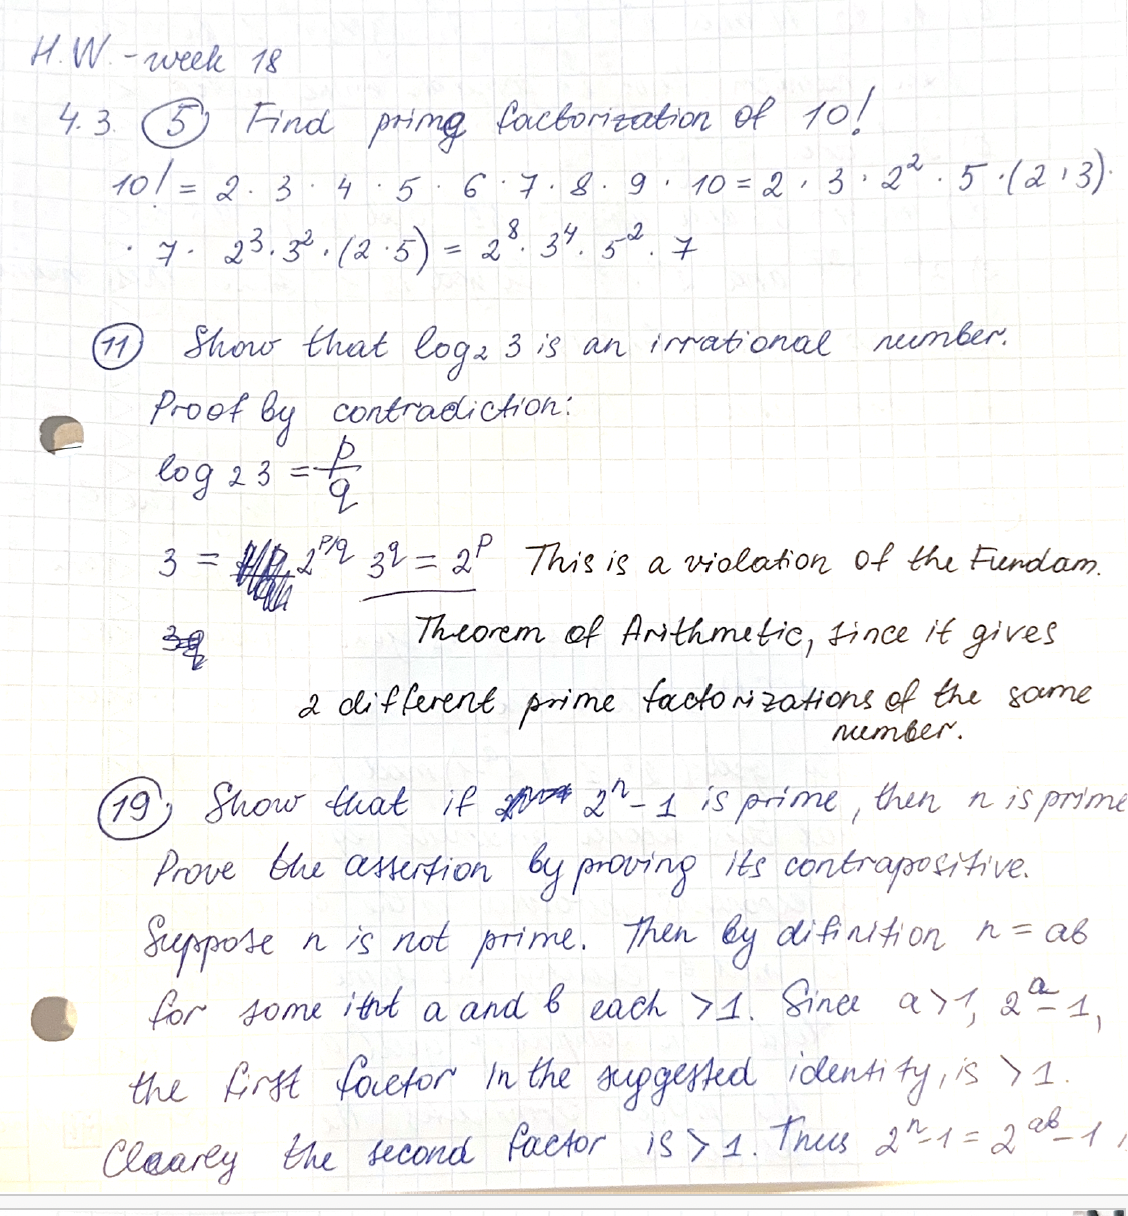 H.W. - week 18
4.3. (5) Find prime factorization of 10!
10! = 2 · 3 · 4 · 5 · 6 · 7 · 8 · 9 · 10 = 2 · 3 · 2² · 5 · (2 · 3) ·
· 7 · 2³ · 3² · (2 · 5) = 2⁸ · 3⁴ · 5² · 7
(11) Show that log₂ 3 is an irrational number.
Proof by contradiction:
log 2 3 = p/q
3 = 2^(p/q) 3^q = 2^p This is a violation of the Fundam.
3q Theorem of Arithmetic, since it gives
2 different prime factorizations of the same
number.
(19) Show that if 2ⁿ - 1 is prime, then n is prime
Prove the assertion by proving its contrapositive.
Suppose n is not prime. Then by difinition n = ab
for some int a and b each > 1. Since a > 1, 2^a - 1,
the first factor in the suggested identity, is > 1.
Clearly the second factor is > 1. Thus 2ⁿ - 1 = 2^(ab) - 1,